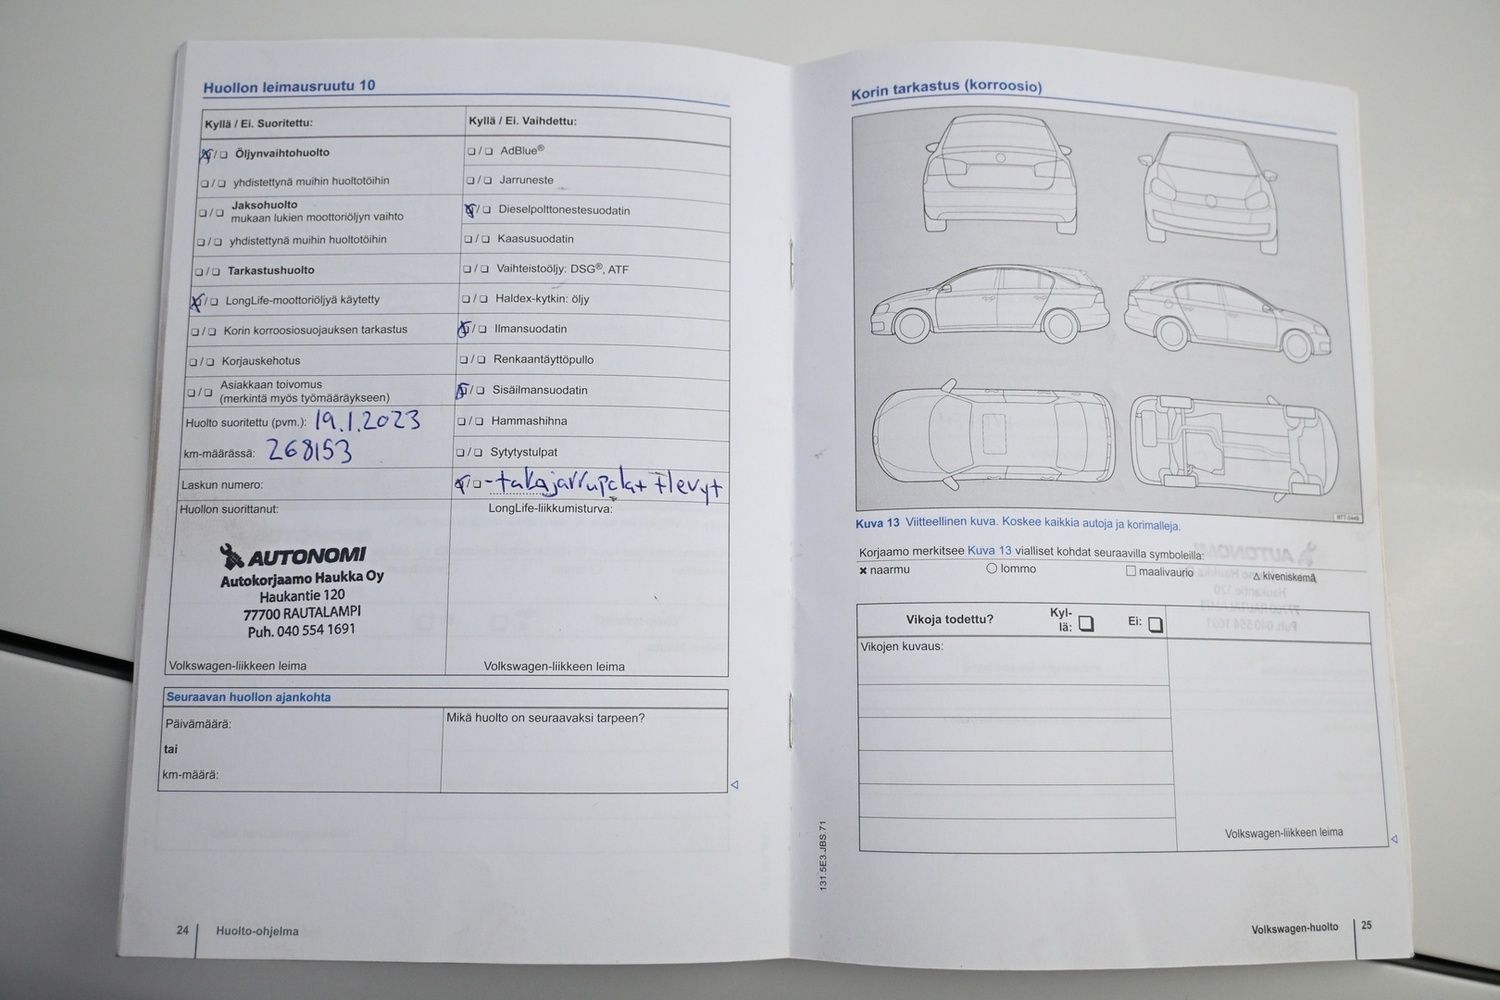 Huollon leimausruutu 10
Kyllä / Ei. Suoritettu:
Öljynvaihtohuolto
yhdistettynä muihin huoltotöihin
Jaksohuolto
mukaan lukien moottoriöljyn vaihto
yhdistettynä muihin huoltotöihin
Tarkastushuolto
LongLife-moottoriöljyä käytetty
Korin korroosiosuojauksen tarkastus
Korjauskehotus
Asiakkaan toivomus
(merkintä myös työmääräykseen)
Huolto suoritettu (pvm.): 19.1.2023
km-määrässä: 268153
Laskun numero:
Huollon suorittanut:
AUTONOMI
Autokorjaamo Haukka Oy
Haukantie 120
77700 RAUTALAMPI
Puh. 040 554 1691
Volkswagen-liikkeen leima
Kyllä / Ei. Vaihdettu:
AdBlue®
Jarruneste
Dieselpolttonestesuodatin
Kaasusuodatin
Vaihteistoöljy: DSG®, ATF
Haldex-kytkin: öljy
Ilmansuodatin
Renkaantäyttöpullo
Sisäilmansuodatin
Hammashihna
Sytytystulpat
-takajarrupalat+levyt
LongLife-liikkumisturva:
Volkswagen-liikkeen leima
Seuraavan huollon ajankohta
Päivämäärä:
tai
km-määrä:
Mikä huolto on seuraavaksi tarpeen?
24 Huolto-ohjelma
Korin tarkastus (korroosio)
Kuva 13 Viitteellinen kuva. Koskee kaikkia autoja ja korimalleja.
Korjaamo merkitsee Kuva 13 vialliset kohdat seuraavilla symboleilla:
× naarmu ○ lommo □ maalivaurio △ kiveniskemä
Vikoja todettu? Kyl-
lä: Ei:
Vikojen kuvaus:
Volkswagen-liikkeen leima
131.5E3.JBS.71
Volkswagen-huolto 25